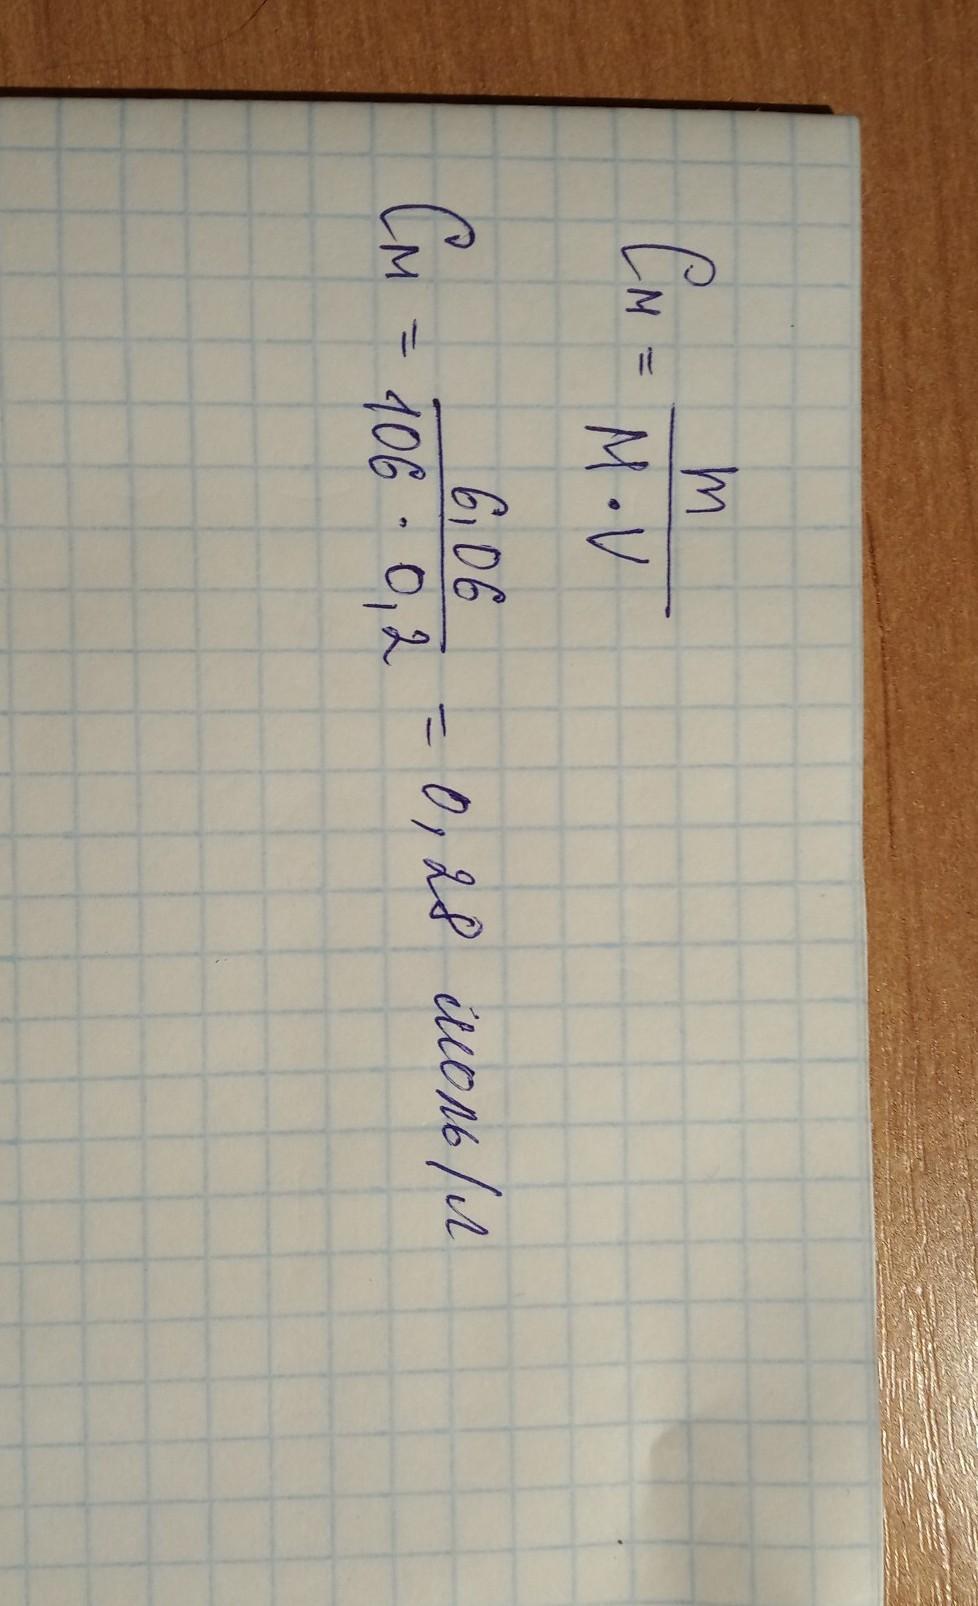 См = m / M · V
См = 6,06 / 106 · 0,2 = 0,28 моль/л